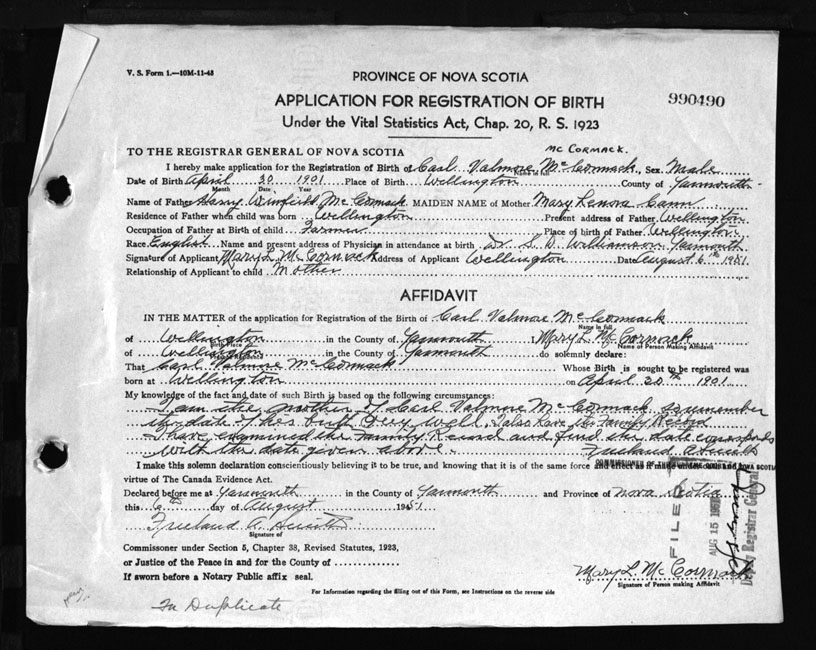 V. S. Form 1.—10M-11-48
PROVINCE OF NOVA SCOTIA
APPLICATION FOR REGISTRATION OF BIRTH
990490
Under the Vital Statistics Act, Chap. 20, R. S. 1923
Mc CORMACK.
TO THE REGISTRAR GENERAL OF NOVA SCOTIA
I hereby make application for the Registration of Birth of Carl Valmore McCormack, Sex Male
Date of Birth April 20 1901 Place of Birth Wellington County of Yarmouth
Month Day Year
Name of Father Harry Winfield McCormack MAIDEN NAME of Mother Mary Lenora Cann
Residence of Father when child was born Wellington Present address of Father Wellington
Occupation of Father at Birth of child Farmer Place of birth of Father Wellington
Race English Name and present address of Physician in attendance at birth Dr. S. W. Williamson Yarmouth
Signature of Applicant Mary L. McCormack Address of Applicant Wellington Date August 6th 1951
Relationship of Applicant to child Mother
AFFIDAVIT
IN THE MATTER of the application for Registration of the Birth of Carl Valmore McCormack
Name in full
of Wellington in the County of Yarmouth I Mary L McCormack
Birth Place Name of Person Making Affidavit
of Wellington in the County of Yarmouth do solemnly declare:
That Carl Valmore McCormack Whose Birth is sought to be registered was
born at Wellington on April 20th 1901
My knowledge of the fact and date of such Birth is based on the following circumstances:
I am the mother of Carl Valmore McCormack & remember
the date of his birth very well. I also have the Family Record
I have examined the Family Record and find the date corresponds
with the date given above. Freeland A
I make this solemn declaration conscientiously believing it to be true, and knowing that it is of the same force and effect as if made under oath and by
virtue of The Canada Evidence Act.
Declared before me at Yarmouth in the County of Yarmouth and Province of Nova Scotia
this 6th day of August 1951
Freeland A.
Signature of
FILED
AUG 15 1951
Deputy Registrar General
Commissioner under Section 5, Chapter 38, Revised Statutes, 1923,
or Justice of the Peace in and for the County of
If sworn before a Notary Public affix seal.
Mary L McCormack
Signature of Person making Affidavit
For Information regarding the filling out of this Form, see Instructions on the reverse side
In Duplicate